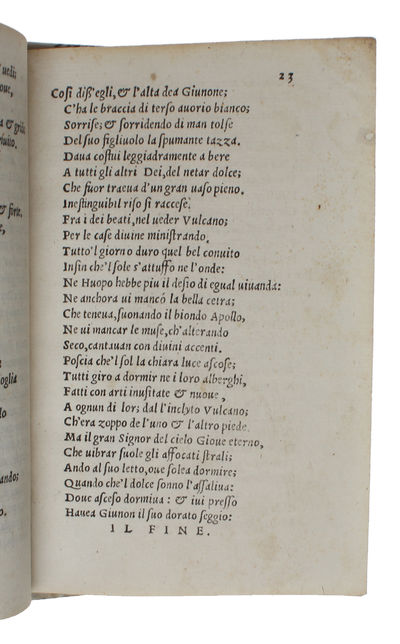 uedi;
oue,
a & grida
riuito.
& forte,
e,
e
oglia
do
ando;
o.
23
Così diss'egli, & l'alta dea Giunone;
C'ha le braccia di terso auorio bianco;
Sorrise; & sorridendo di man tolse
Del suo figliuolo la spumante tazza.
Daua costui leggiadramente a bere
A tutti gli altri Dei, del netar dolce;
Che fuor traeua d'un gran uaso pieno.
Inestinguibil riso si raccese.
Fra i dei beati, nel ueder Vulcano;
Per le case diuine ministrando.
Tutto'l giorno duro quel bel conuito
Insin che'l sole s'attuffo ne l'onde:
Ne Huopo hebbe piu il desio di egual uiuanda:
Ne anchora ui mancò la bella cetra;
Che teneua, suonando il biondo Apollo,
Ne ui mancar le muse, ch'alterando
Seco, cantauan con diuini accenti.
Poscia che'l sol la chiara luce ascose;
Tutti giro a dormir ne i loro alberghi,
Fatti con arti inusitate & nuoue,
A ognun di lor; dal l'inclyto Vulcano;
Ch'era zoppo de l'uno & l'altro piede.
Ma il gran Signor del cielo Gioue eterno,
Che uibrar suole gli affocati strali;
Ando al suo letto, oue solea dormire;
Quando che'l dolce sonno l'assaliua:
Doue asceso dormiua: & iui presso
Hauea Giunon il suo dorato seggio:
IL FINE.